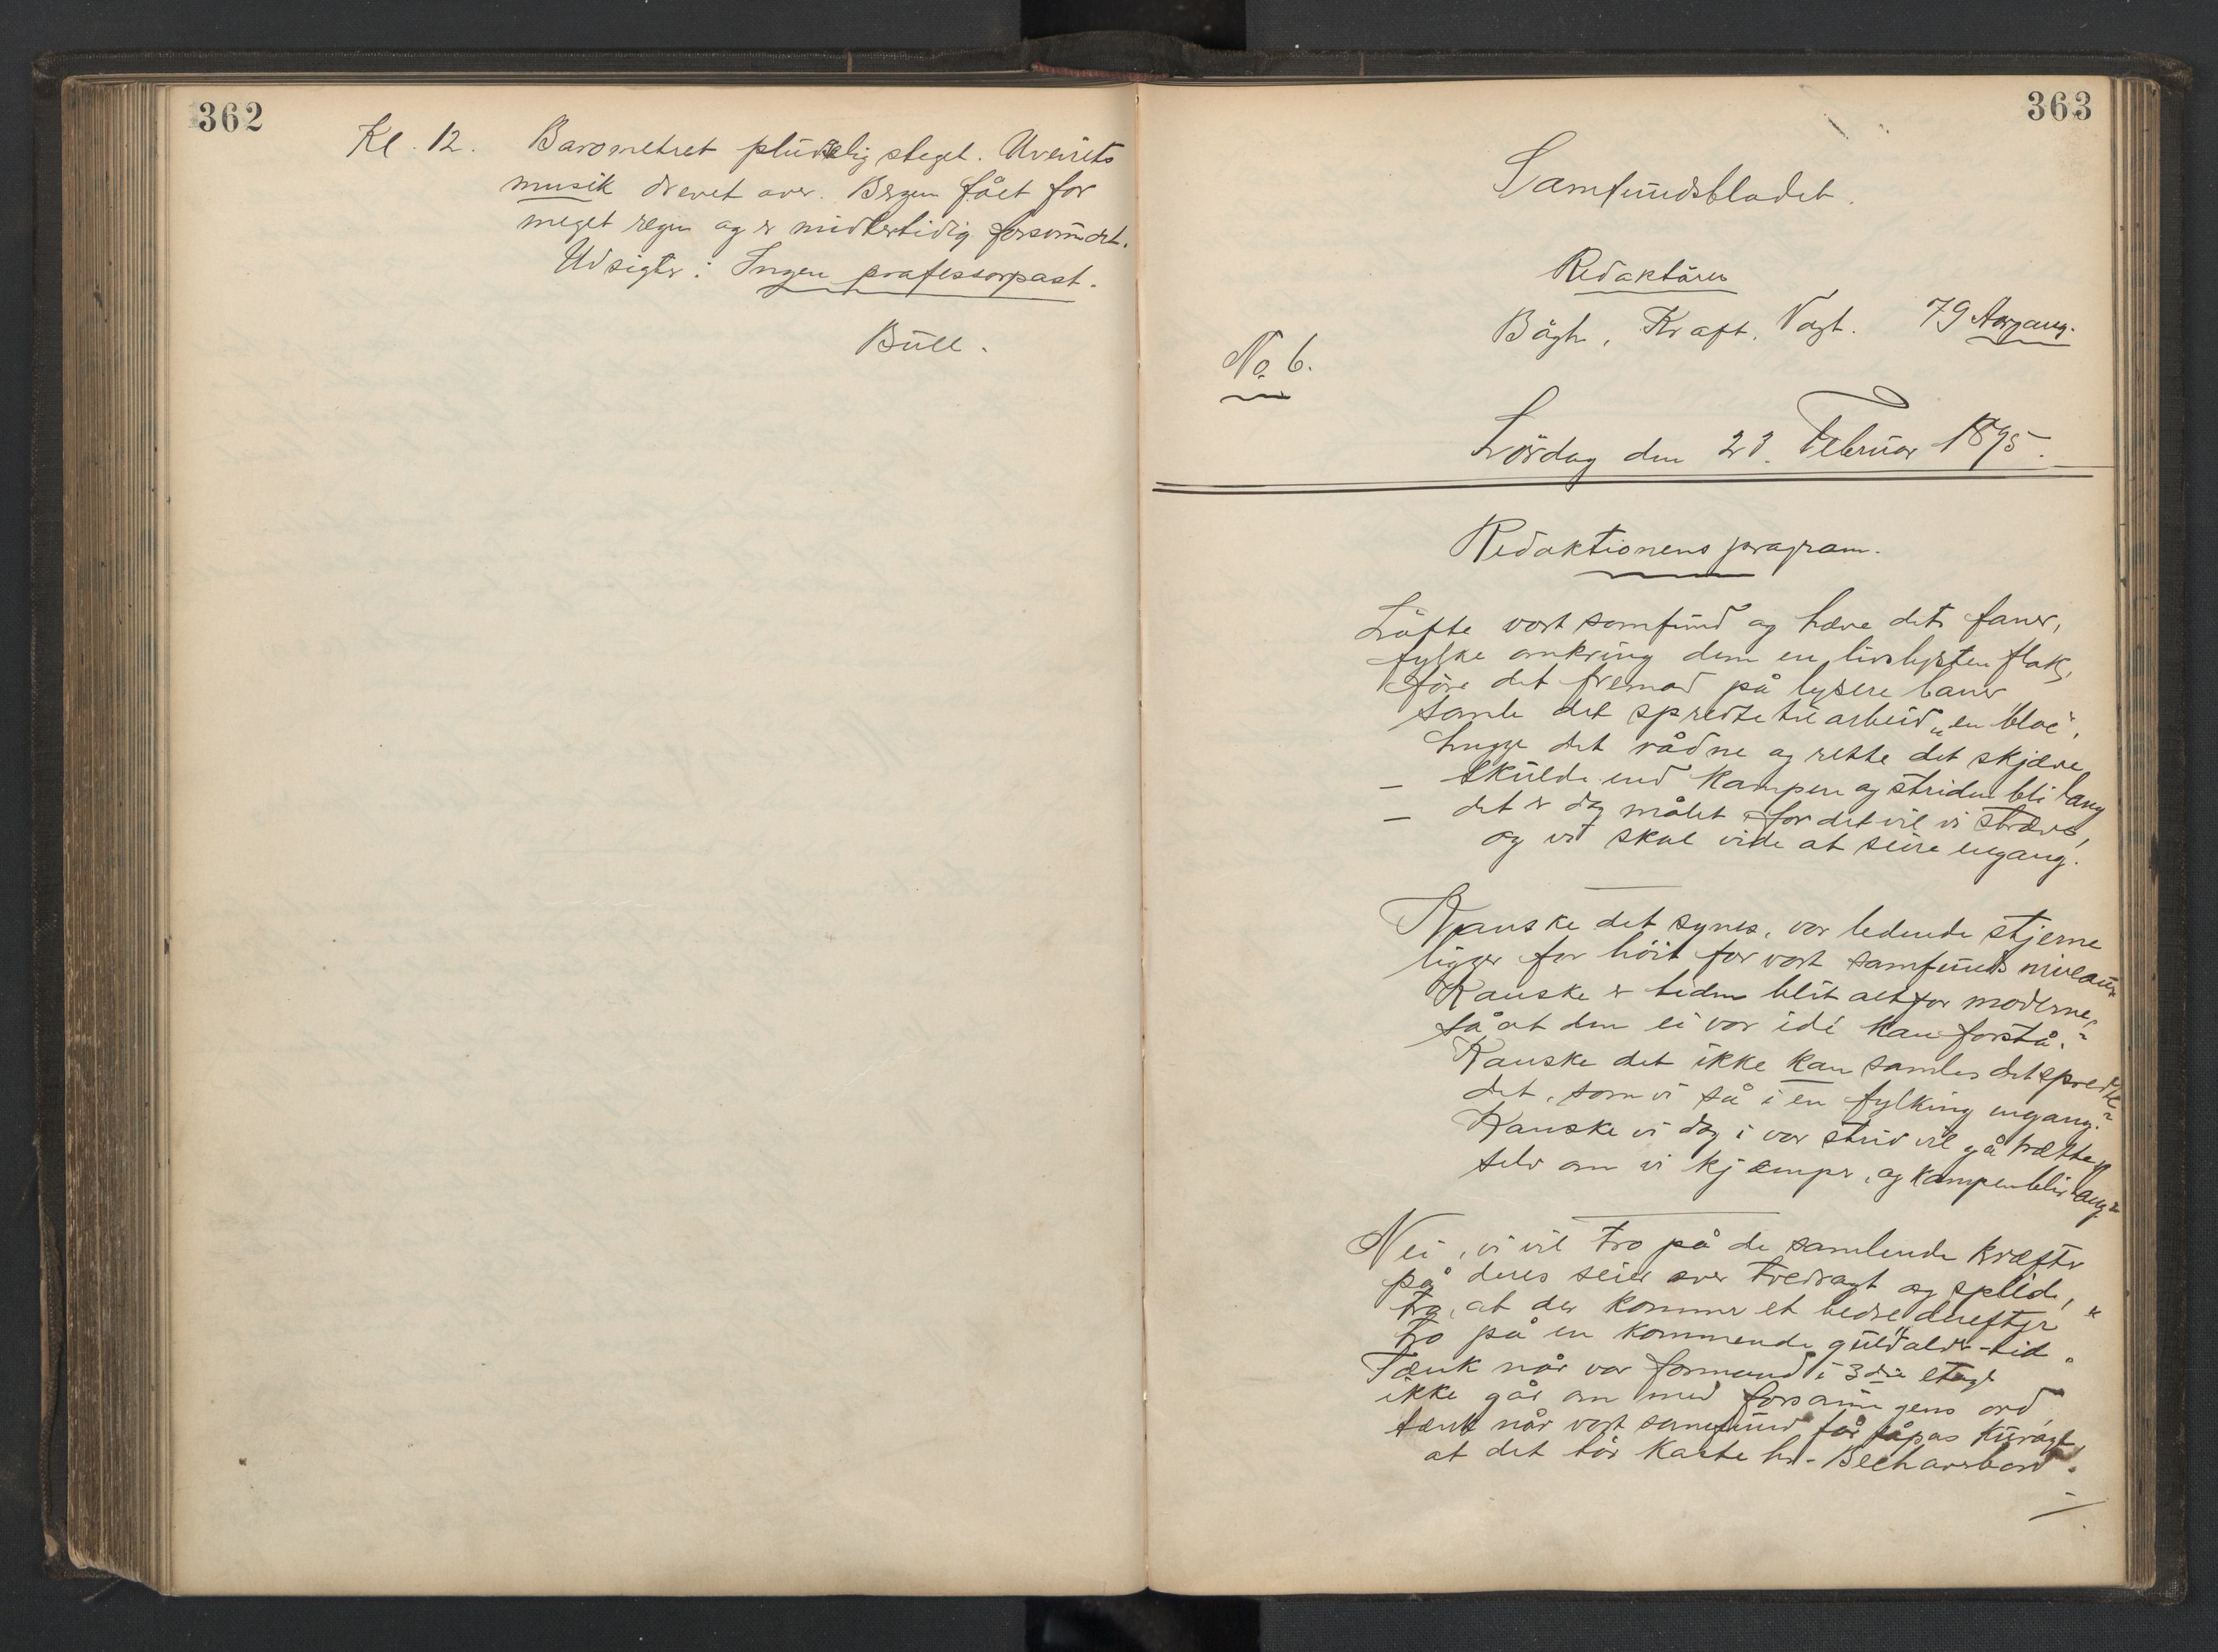 362
Kl. 12. Barometret pludselig steget. Uveirets
musik drevet over. Bergen fået for
meget regn og er midlertidig forsvundet.
Udsigter: Ingen professorpost.
Büll.
363
Samfundsbladet.
Redaktører
Bøgh, Kraft, Vogt. 79 Aargang.
No 6.
Lørdag den 23. Februar 1895.
Redaktionens program.
Løfte vort samfund og hæve dets faner,
fylke omkring dem en livslysten flok,
føre det fremad på lysere baner
samle det spredte til arbeid „en bloc“,
hugge det rådne og rette det skjæve
– skulde end kampen og striden bli lang
– det er dog målet for det vil vi stræve,
og vi skal vide at seire engang.
Kanske det synes, vor ledende stjerne
ligger for høit for vort samfunds niveau?
Kanske er tiden blit altfor moderne,
så at den ei vor idé kan forstå?
Kanske det ikke kan samles det spredte
det, som vi så i en fylking engang?
Kanske vi dog i vor strid vil gå trætte,
selv om vi kjæmper, og kampen blir lang?
Nei, vi vil tro på de samlende kræfter
på deres seier over tvedragt og splid,
tro, at der kommer et bedre derefter
tro på en kommende guldalder-tid.
Tænk når vor formand i 3die etage
ikke går om med forsamlingens ord
tænk når vort samfund får såpas kurage,
at det tør kaste hr.